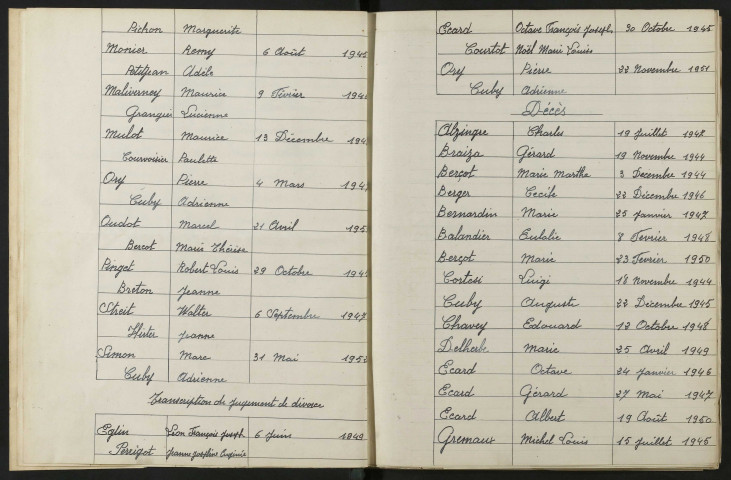 Pichon Marguerite
Monier Remy 6 Août 194
Petitjean Adèle
Maliverney Maurice 9 Février 194
Grangier Lucienne
Mulot Maurice 13 Décembre 194
Courvoisier Paulette
Ory Pierre 4 Mars 194
Cuby Adrienne
Oudot Marcel 21 Avril 195
Bercot Marie Thérèse
Pinget Robert Louis 29 Octobre 194
Breton Jeanne
Streit Walter 6 Septembre 1947
Hister Jeanne
Simon Marc 31 Mai 195
Cuby Adrienne
Transcription de jugement de divorce
Eglin Léon François Joseph 6 Juin 1949
Perrigot Jeanne Joséphine Eugénie
Ecard Octave François Joseph 30 Octobre 1945
Courtot Noël Marie Louise
Ory Pierre 22 Novembre 1951
Cuby Adrienne
Décès
Alzingre Charles 19 Juillet 1947
Braiza Gérard 19 Novembre 1944
Berçot Marie Marthe 3 Décembre 1944
Berger Cécile 22 Décembre 1946
Bernardin Marie 25 Janvier 1947
Balandier Eulalie 8 Février 1948
Berçot Marie 23 Février 1950
Cortesi Luigi 18 Novembre 1944
Cuby Auguste 22 Décembre 1945
Chavey Edouard 12 Octobre 1948
Delherbe Marie 25 Avril 1949
Ecard Octave 24 Janvier 1946
Ecard Gérard 27 Mai 1947
Ecard Albert 19 Août 1950
Gremaux Michel Louis 15 Juillet 1946